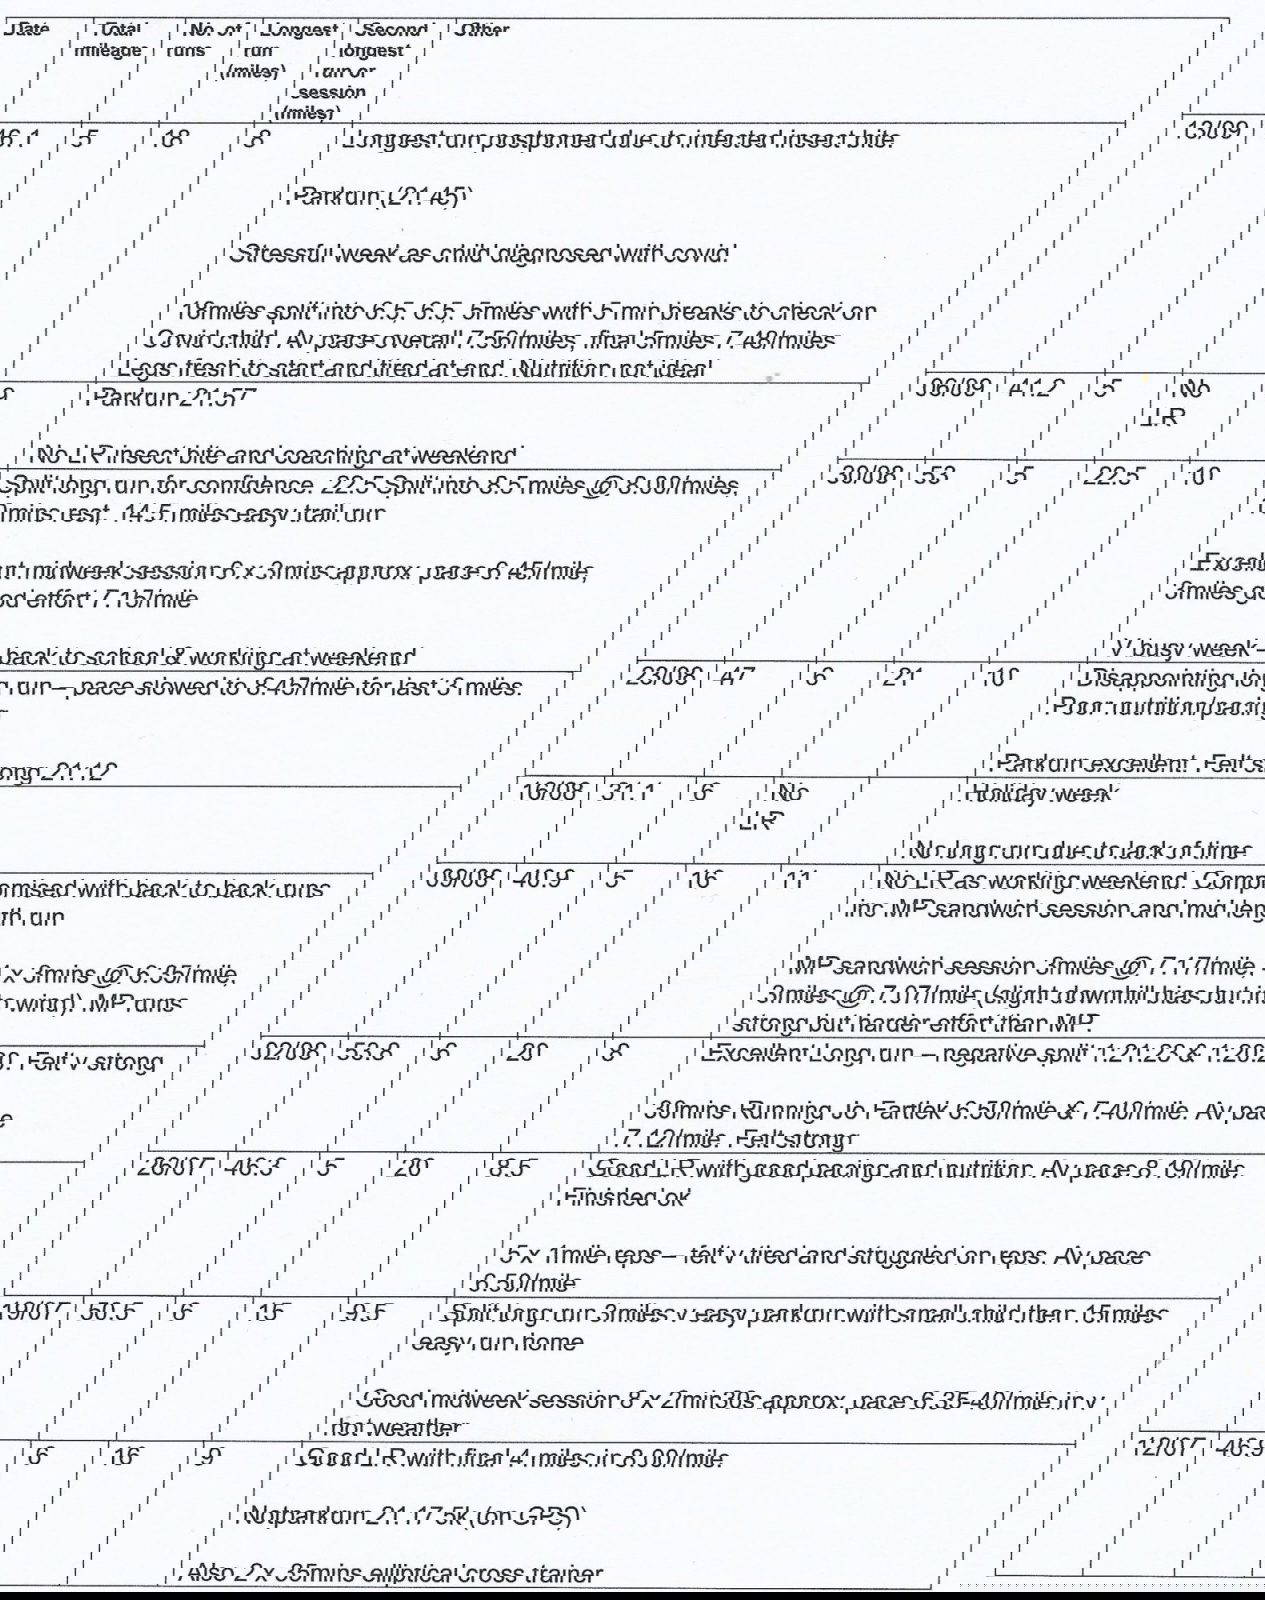 Date Total No. of Longest Second Other
mileage runs run longest
(miles) run or
session
(miles)
13/09
46.1 5 18 8 Longest run postponed due to infected insect bite.
Parkrun (21.45)
Stressful week as child diagnosed with covid.
18miles split into 6.5, 6.5, 5miles with 5 min breaks to check on
Covid child. Av pace overall 7.56/miles, final 5miles 7.48/miles
Legs fresh to start and tired at end. Nutrition not ideal
06/09 41.2 5 No
LR
9 Parkrun 21.57
No LR insect bite and coaching at weekend
30/08 53 5 22.5 10
Split long run for confidence. 22.5 Split into 8.5 miles @ 8.00/miles,
mins rest, 14.5 miles easy trail run
Excell
nt midweek session 6 x 3mins approx. pace 6.45/mile,
3miles go
od effort 7.15/mile
V busy week –
back to school & working at weekend
23/08 47 6 21 10 Disappointing lon
g run – pace slowed to 8.45/mile for last 3 miles.
Poor nutrition/pacin
g
Parkrun excellent. Felt st
rong 21.12
16/08 31.1 6 No Holiday week
LR
No long run due to lack of time
09/08 40.9 5 16 11 No LR as working weekend. Compr
omised with back to back runs
inc MP sandwich session and mid leng
th run
MP sandwich session 3miles @ 7.17/mile,
x 3mins @ 6.35/mile,
3miles @ 7.07/mile (slight downhill bias but in
to wind). MP runs
strong but harder effort than MP.
02/08 53.8 6 20 8 Excellent Long run – negative split 1:21:23 & 1:20:2
Felt v strong
30mins Running Jo Fartlek 6.50/mile & 7.40/mile. Av pac
e
7.12/mile. Felt strong
26/07 46.3 5 20 8.5 Good LR with good pacing and nutrition. Av pace 8.19/mile.
Finished ok
5 x 1mile reps – felt v tired and struggled on reps. Av pace
6.50/mile
19/07 50.5 6 15 9.5 Split long run 3miles v easy parkrun with small child then 15miles
easy run home
Good midweek session 8 x 2min30s approx. pace 6.35-40/mile in v
hot weather
12/07 46.9
6 16 9 Good LR with final 4 miles in 8.00/mile.
Notparkrun 21.17 5k (on GPS)
Also 2 x 35mins elliptical cross trainer